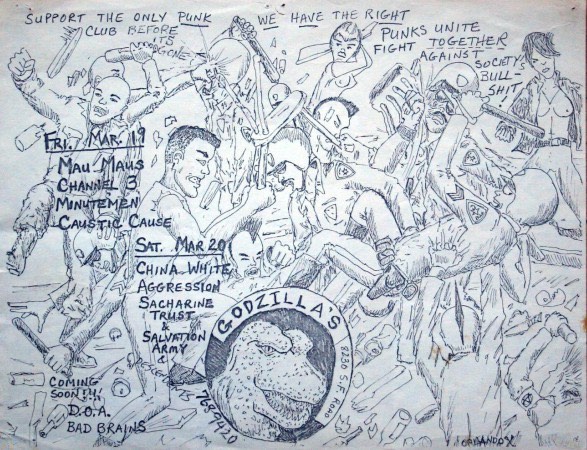 SUPPORT THE ONLY PUNK
CLUB BEFORE
ITS
GONE
WE HAVE THE RIGHT
PUNKS UNITE
FIGHT TOGETHER
AGAINST
SOCIETY'S
BULL-
SHIT!
FRI. MAR. 19
MAU MAUS
CHANNEL 3
MINUTEMEN
CAUSTIC CAUSE
SAT. MAR 20
CHINA WHITE
AGGRESSION
SACHARINE
TRUST
&
SALVATION
ARMY
GODZILLA'S
8230 S.
ROAD
COMING
SOON!!
D.O.A.
BAD BRAINS